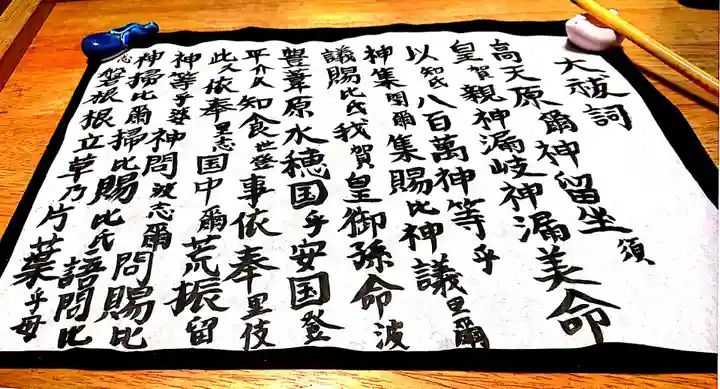 大祓詞
高天原爾神留坐須
皇賀親神漏岐神漏美命
以知氐八百萬神等乎
神集閉爾集賜比神議里爾
議賜比氐我賀皇御孫命波
豐葦原水穂国乎安国登
平介久知食世登事依奉里伎
此久依奉里志国中爾荒振留
神等乎波神問波志爾問賜比
神掃比爾掃比賜比氐語問比
志磐根根立草乃片葉乎母